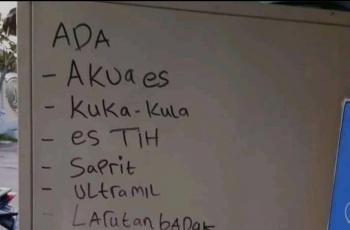 ADA
- AKUA es
- KUKA-KULA
- es TIH
- SAPRIT
- ULTRAMIL
- LARUTAN BADAK